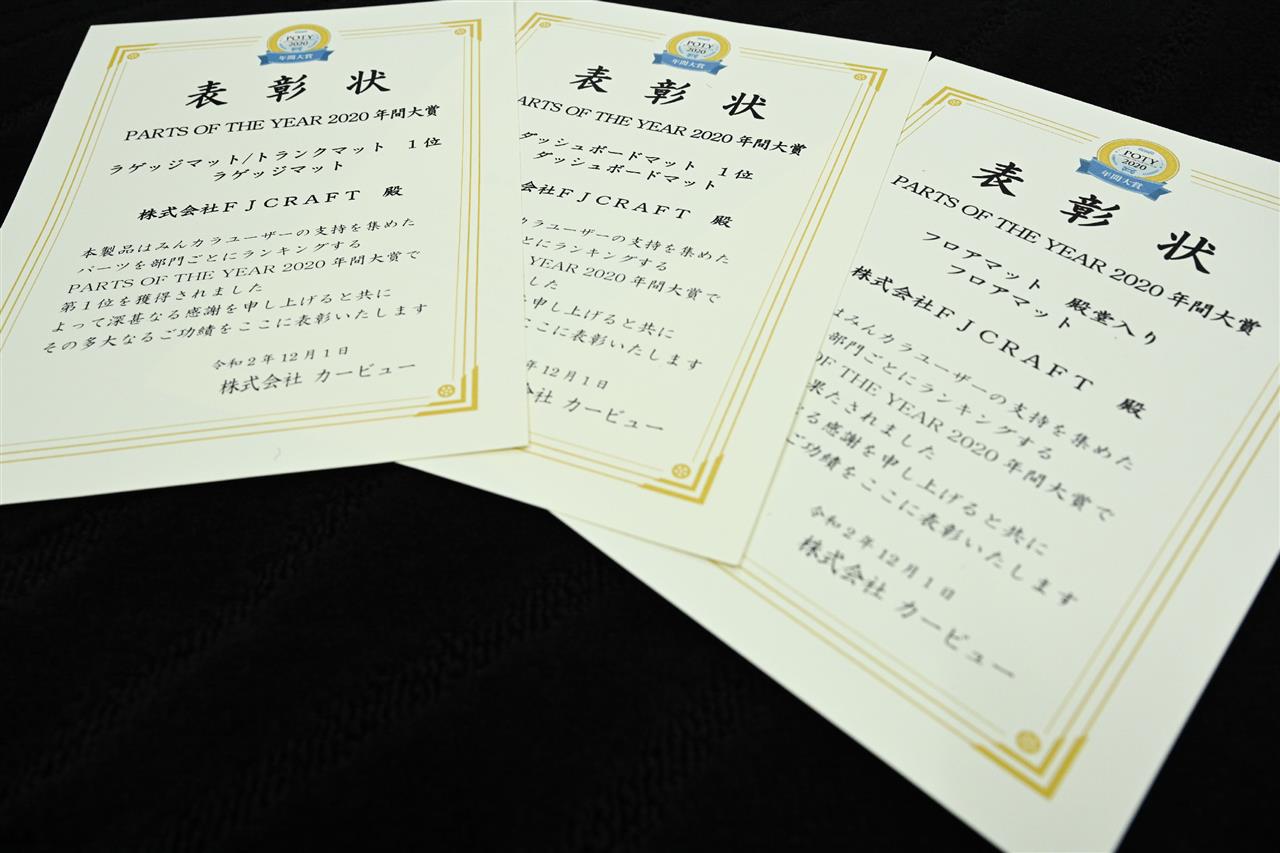 POTY
2020
年間大賞
表彰状
PARTS OF THE YEAR 2020 年間大賞
ラゲッジマット/トランクマット 1位
ラゲッジマット
株式会社FJCRAFT 殿
本製品はみんカラユーザーの支持を集めた
パーツを部門ごとにランキングする
PARTS OF THE YEAR 2020 年間大賞で
第1位を獲得されました
よって深甚なる感謝を申し上げると共に
その多大なるご功績をここに表彰いたします
令和2年12月1日
株式会社 カービュー
POTY
2020
年間大賞
表彰状
ARTS OF THE YEAR 2020 年間大賞
ダッシュボードマット 1位
ダッシュボードマット
会社FJCRAFT 殿
ラユーザーの支持を集めた
とにランキングする
YEAR 2020 年間大賞で
した
申し上げると共に
ここに表彰いたします
年12月1日
会社 カービュー
POTY
2020
年間大賞
表彰状
PARTS OF THE YEAR 2020 年間大賞
フロアマット 殿堂入り
フロアマット
株式会社FJCRAFT 殿
はみんカラユーザーの支持を集めた
部門ごとにランキングする
OF THE YEAR 2020 年間大賞で
果たされました
る感謝を申し上げると共に
ご功績をここに表彰いたします
令和2年12月1日
株式会社 カービュー